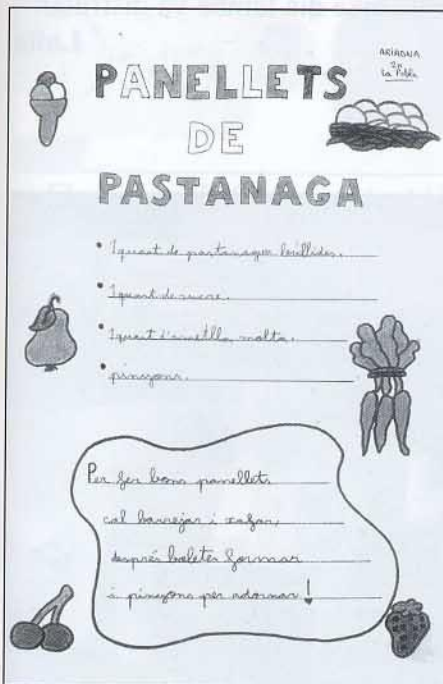 ARIADNA
2n
La Pobla
PANELLETS
DE
PASTANAGA
1 quart de pastanagues bullides.
1 quart de sucre.
1 quart d'ametlla molta.
pinyons.
Per fer bons panellets
cal barrejar i xafar,
després boletes formar
i pinyons per adornar!